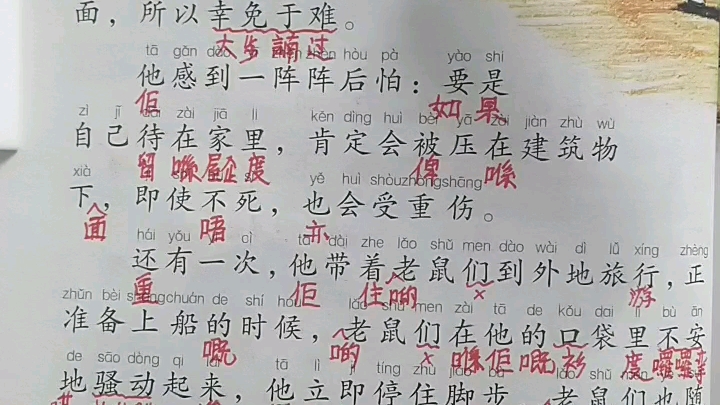 面，所以幸免于难。
大步䟴过
tā gǎn dào zhèn hòu pà yào shi
他感到一阵阵后怕：要是
佢 如果
zì jǐ dāi zài jiā li kěn dìng huì bèi yā zài jiàn zhù wù
自己待在家里，肯定会被压在建筑物
留喺屋企度 俾 喺
xià yě huì shòu zhòng shāng
下，即使不死，也会受重伤。
面 唔 亦
hái yǒu cì tā dài zhe lǎo shǔ men dào wài dì lǚ xíng zhèng
还有一次，他带着老鼠们到外地旅行，正
重 佢 住啲 × 游
zhǔn bèi shàng chuán de shí hou lǎo shǔ men zài tā de kǒu dai li bù ān
准备上船的时候，老鼠们在他的口袋里不安
嘅 啲 × 喺佢嘅衫 度
de sāo dòng qi lai tā lì jí tíng zhù jiǎo bù
地骚动起来，他立即停住脚步，老鼠们也随